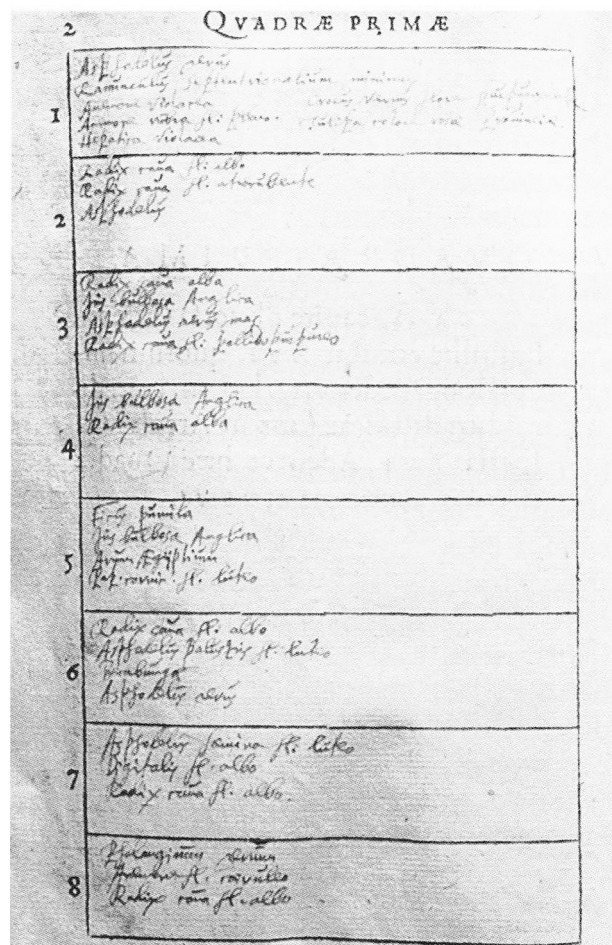 2 QVADRÆ PRIMÆ
1
Asphodelus verus
Ranunculus septentrionalium minimus
Anemone violacea Crocus vernus flore purpurante
Anemone rubra fl. pleno. Tulipa colore rosa
Hepatica violacea
2
Radix caua fl. albo
Radix caua fl. atrorubente
Asphodelus
3
Radix caua alba
Iris bulbosa Anglica
Asphodelus verus maj
Radix caua fl. pallido purpureo
4
Iris bulbosa Anglica
Radix caua alba
5
Ficus pumila
Iris bulbosa Anglica
Arum Ægiptium
fl. luteo
6
Radix caua fl. albo
Asphodelus palustris fl. luteo
Asphodelus verus
7
Asphodelus fœmina fl. luteo
Digitalis fl. albo
Radix caua fl. albo.
8
Phalangium
fl. coeruleo
Radix caua fl. albo